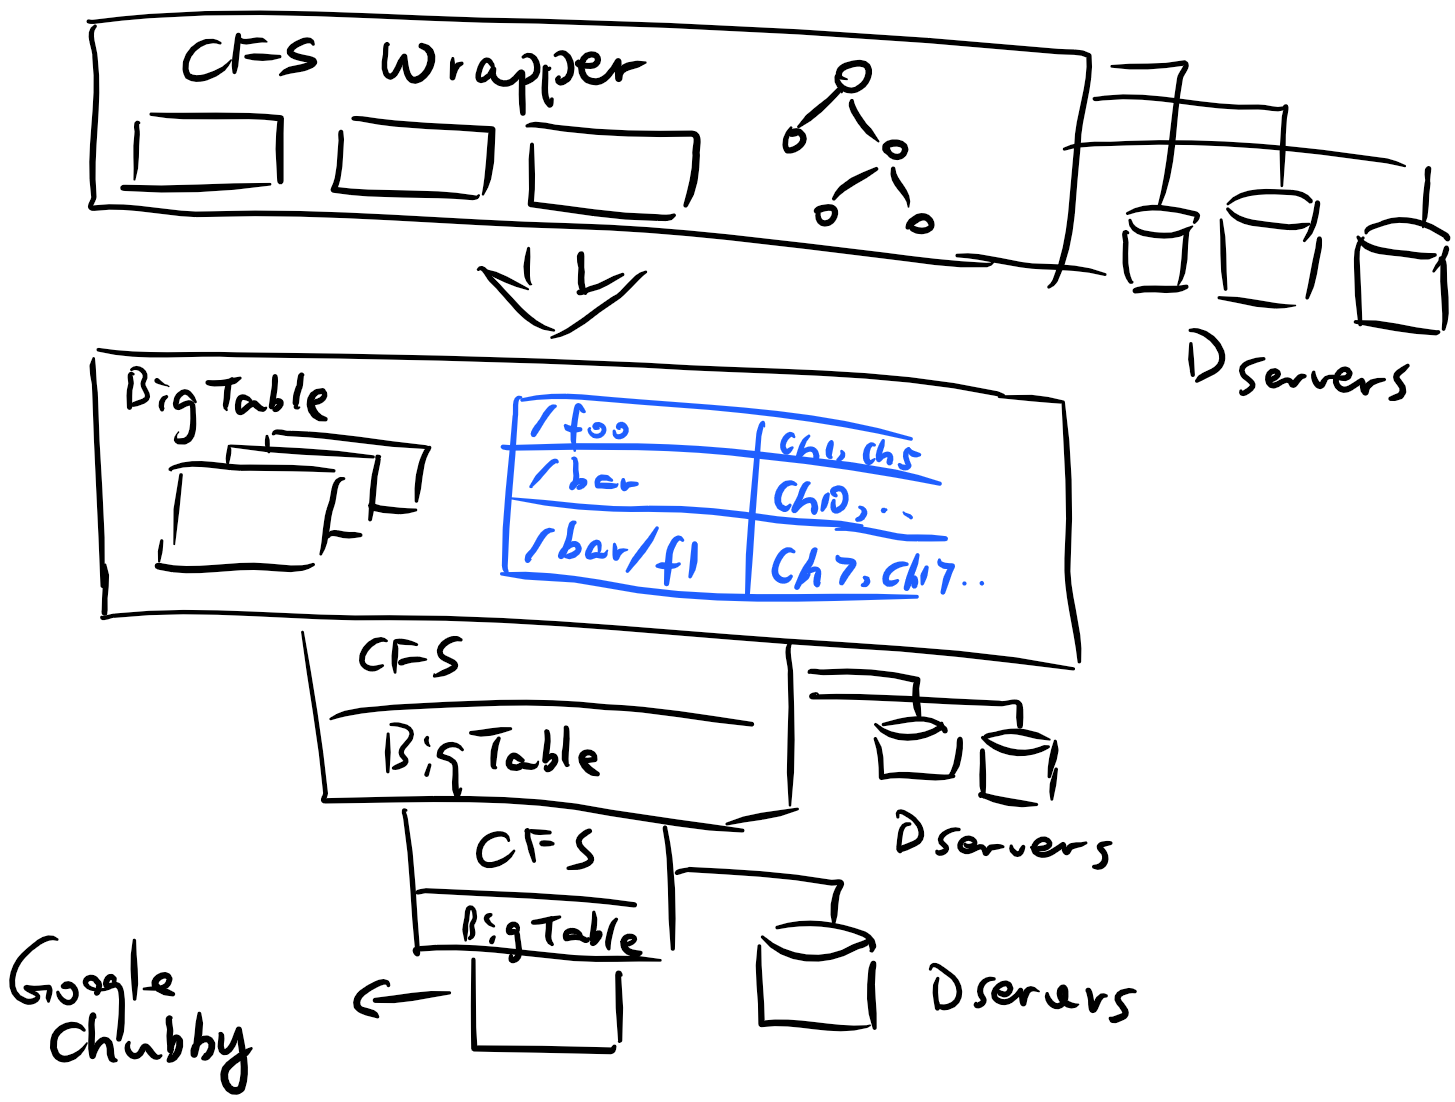 CFS Wrapper
Dservers
BigTable
/foo ch1, ch5
/bar ch10, ..
/bar/f1 ch7, ch17..
CFS
BigTable
Dservers
CFS
BigTable
Dservers
Google
Chubby